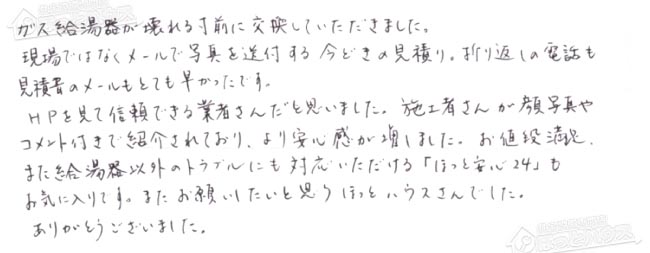 ガス給湯器が壊れる寸前に交換していただきました。
現場ではなくメールで写真を送付する今どきの見積り。折り返しの電話も
見積書のメールもとても早かったです。
HPを見て信頼できる業者さんだと思いました。施工者さんが顔写真や
コメント付きで紹介されており、より安心感が増しました。お値段満足、
また給湯器以外のトラブルにも対応いただける「ほっと安心24」も
お気に入りです。またお願いしたいと思うほっとハウスさんでした。
ありがとうございました。